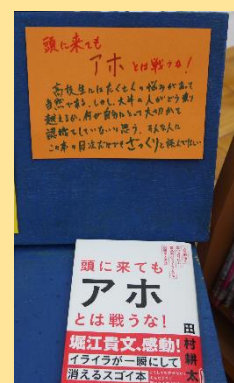 頭に来ても
アホとは戦うな!
高校生にはたくさんの悩みがあって
自然である。しかし、大半の人がどう乗り
越えるか、何が自分にとって大切かて
認識していないと思う。そんな人に
この本の目次だけでもさっくりと読んでみたい
頭に来ても
アホ
とは戦うな!
田村耕太
堀江貴文、感動!
イライラが一瞬にして
消えるスゴイ本